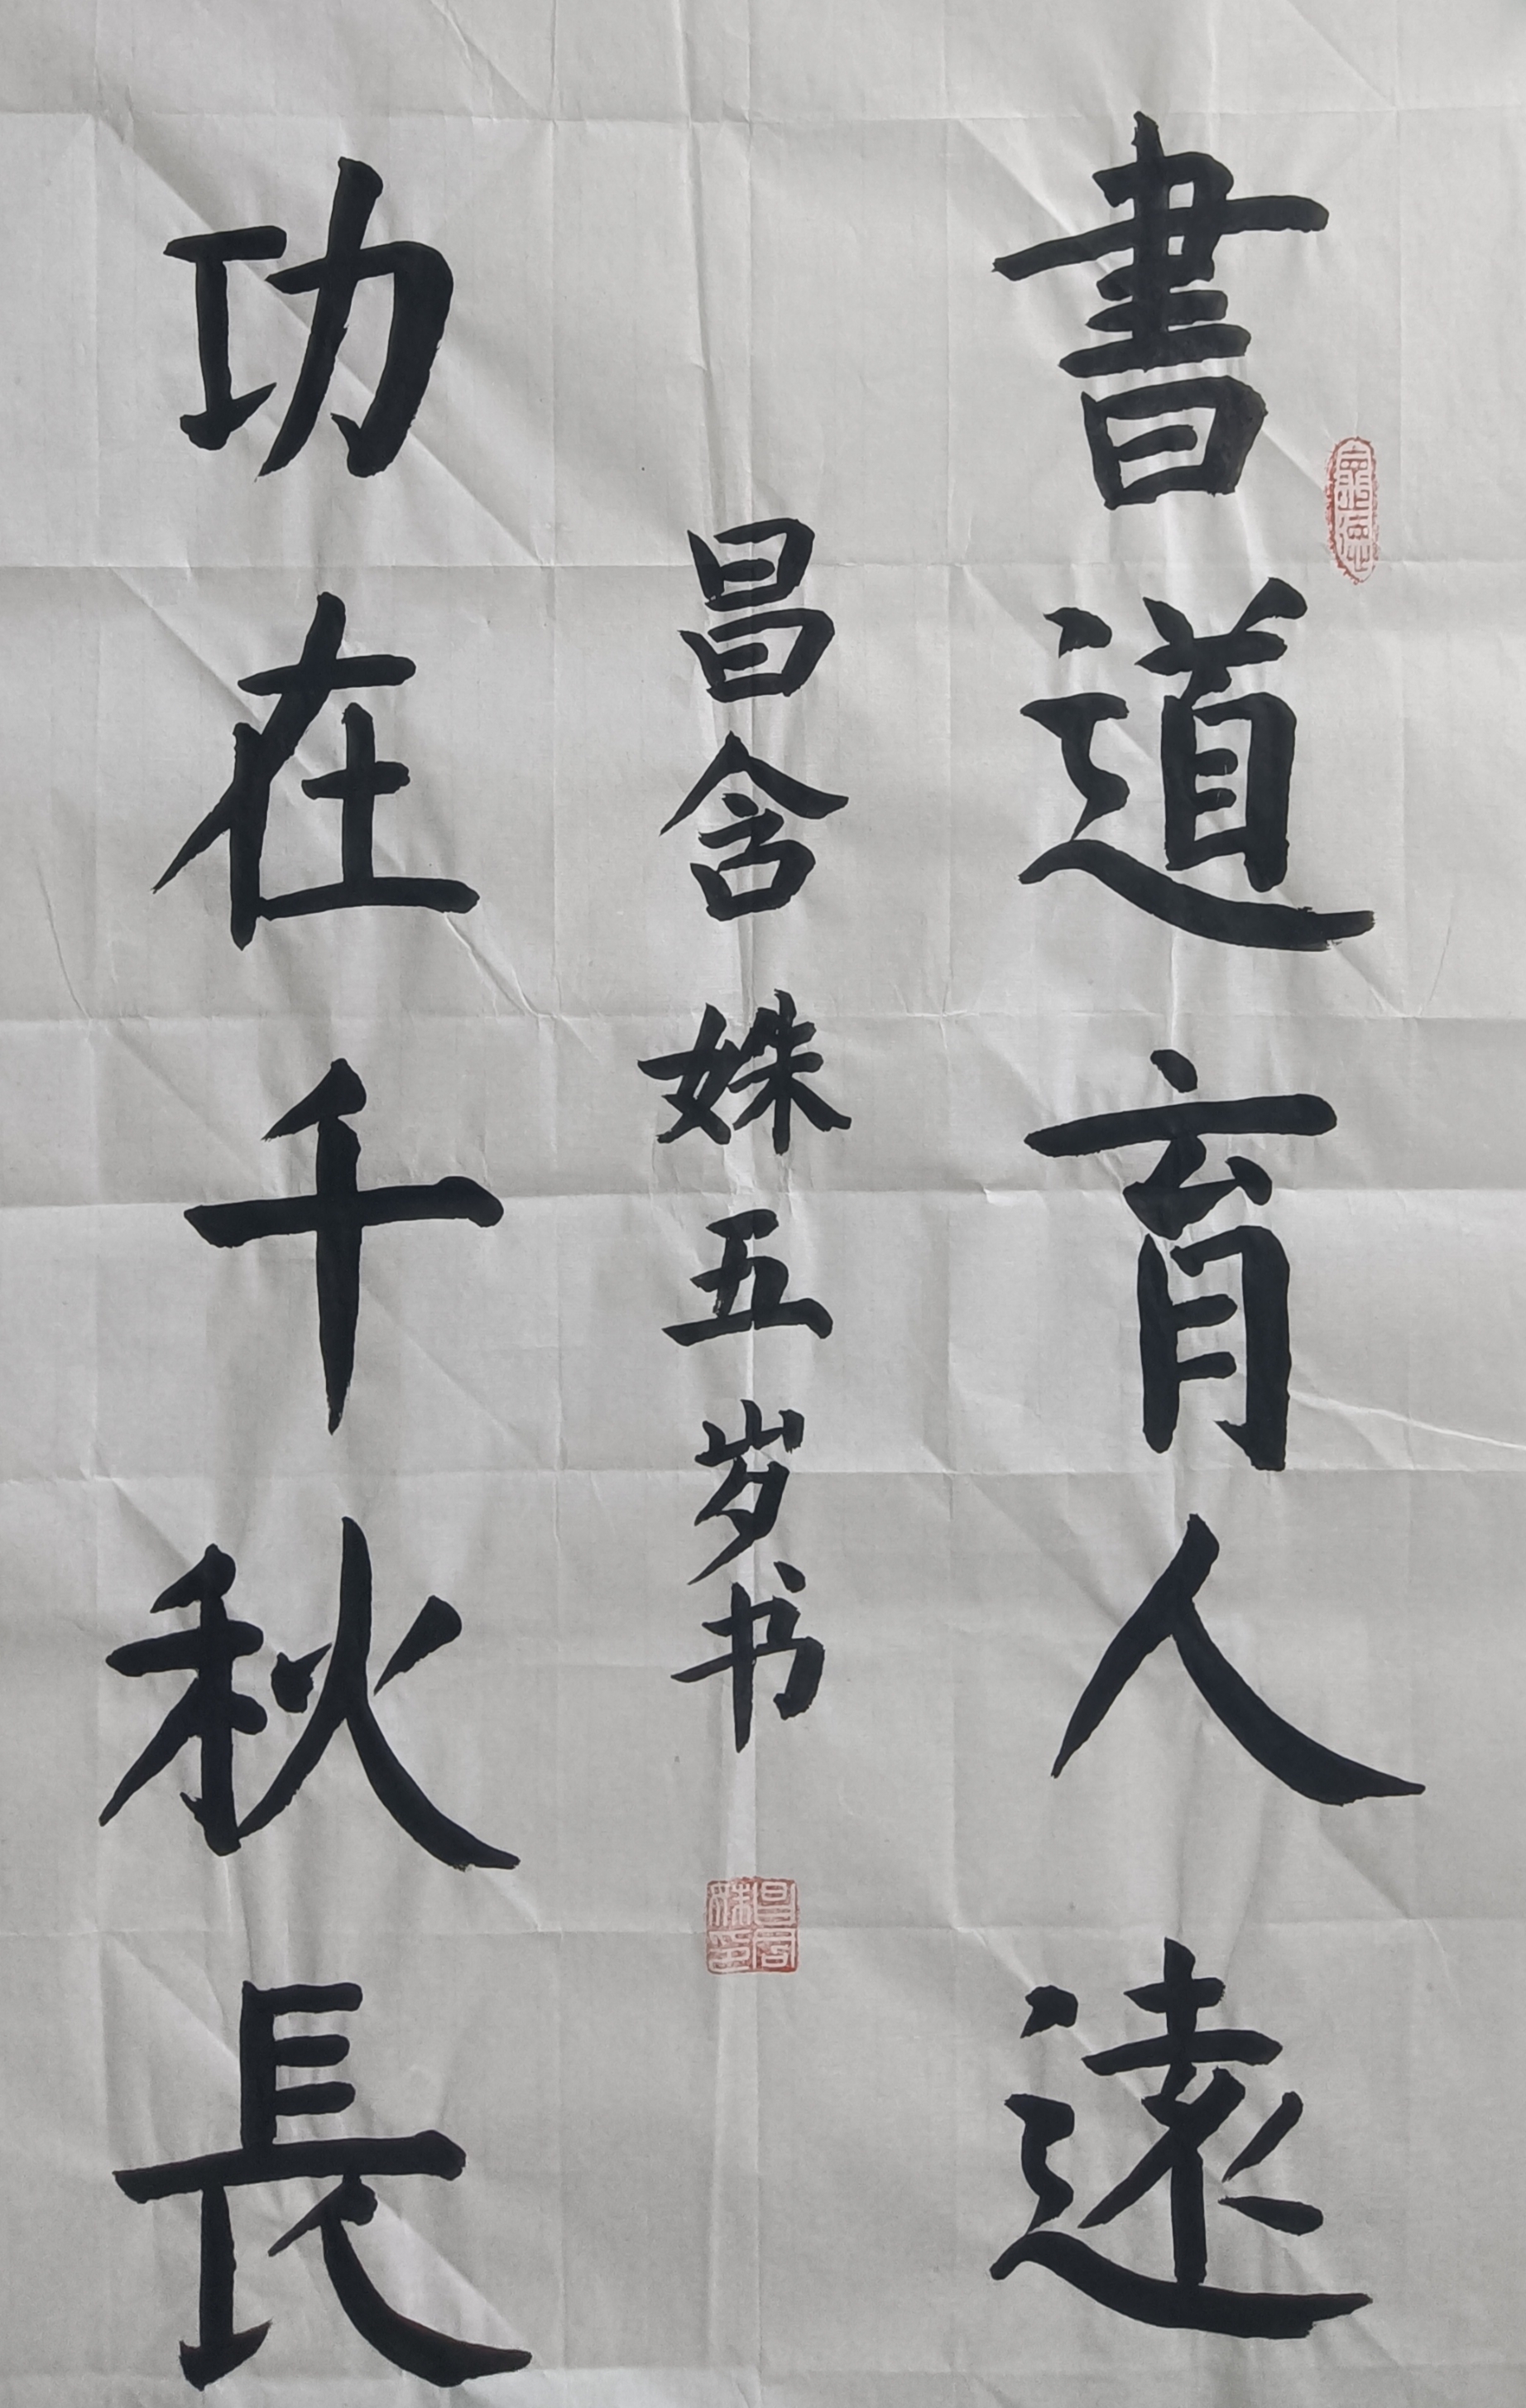 書道育人遠
功在千秋長
昌含姝五岁书
昌含姝印